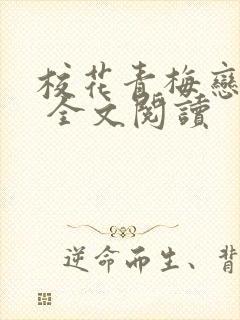 校花青梅戀
全文閱讀
逆命而生、背